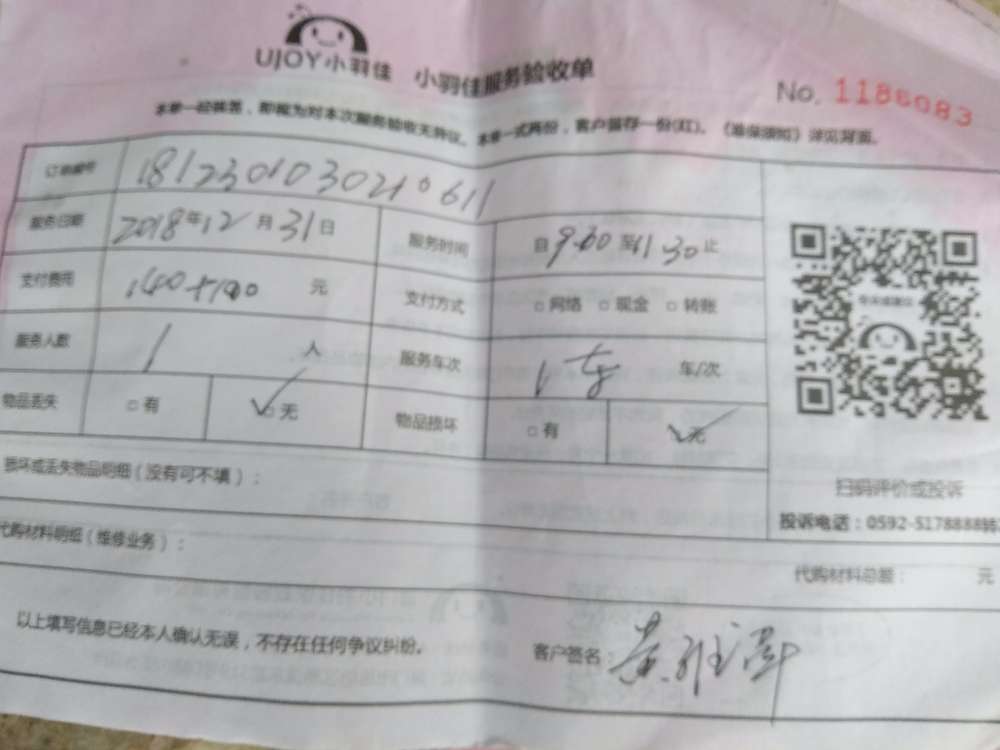 UJOY小羽佳 小羽佳服务验收单
No. 1186083
本单一经签签，即视为对本次服务验收无异议。本单一式两份，客户留存一份(红)。《维保须知》详见背面。
订单编号 1812301030210611
服务日期 2018年12月31日 服务时间 自9:00至11:30止
支付费用 元 支付方式 □网络 □现金 □转账
服务人数 1人 服务车次 1 车/次
物品丢失 □有 ✓□无 物品损坏 □有 ✓□无
损坏或丢失物品明细（没有可不填）：
扫码评价或投诉
投诉电话：0592-5178888转
代购材料明细（维修业务）：
代购材料总额： 元
以上填写信息已经本人确认无误，不存在任何争议纠纷。
客户签名：黄雅